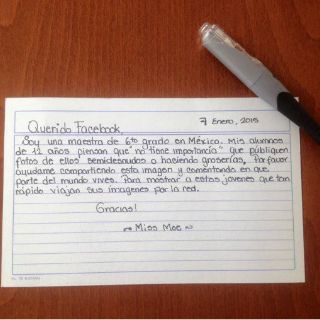 7 Enero, 2015
Querido Facebook,
Soy una maestra de 6to grado en México. Mis alumnos
de 12 años piensan que "no tiene importancia" que publiquen
fotos de ellos semidesnudos o haciendo groserías, Por favor
ayudame compartiendo esta imagen y comentando en que
parte del mundo vives. Para mostrar a estos jovenes que tan
rápido viajan sus imagenes por la red.
Gracias!
~ Miss Moe ~